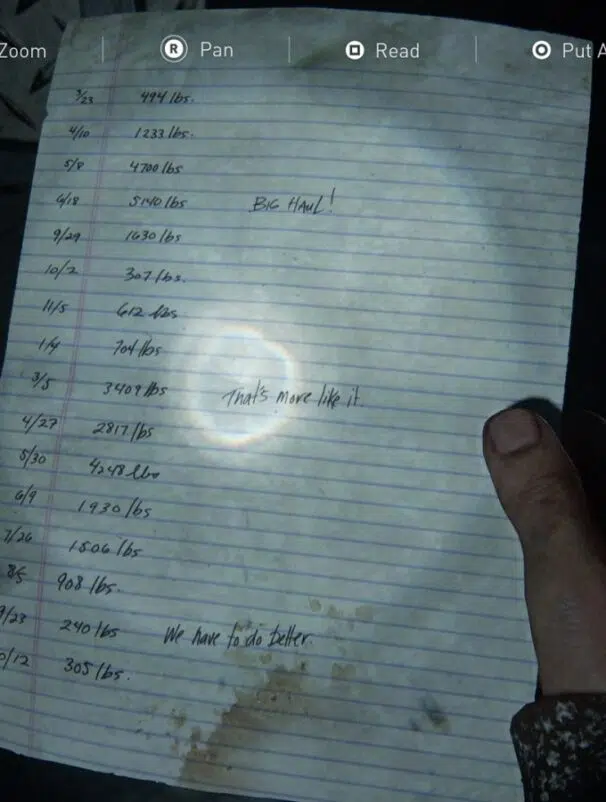 Zoom R Pan Read Put A
3/23 494 lbs.
4/10 1233 lbs.
5/8 4700 lbs
6/18 5140 lbs BIG HAUL!
9/29 1630 lbs
10/2 307 lbs.
11/5 612 lbs
1/4 704 lbs
3/5 3409 lbs That's more like it.
4/27 2817 lbs
5/30 4248 lbs
6/9 1930 lbs
7/26 1506 lbs
8/5 908 lbs.
9/23 240 lbs We have to do better.
0/12 305 lbs.